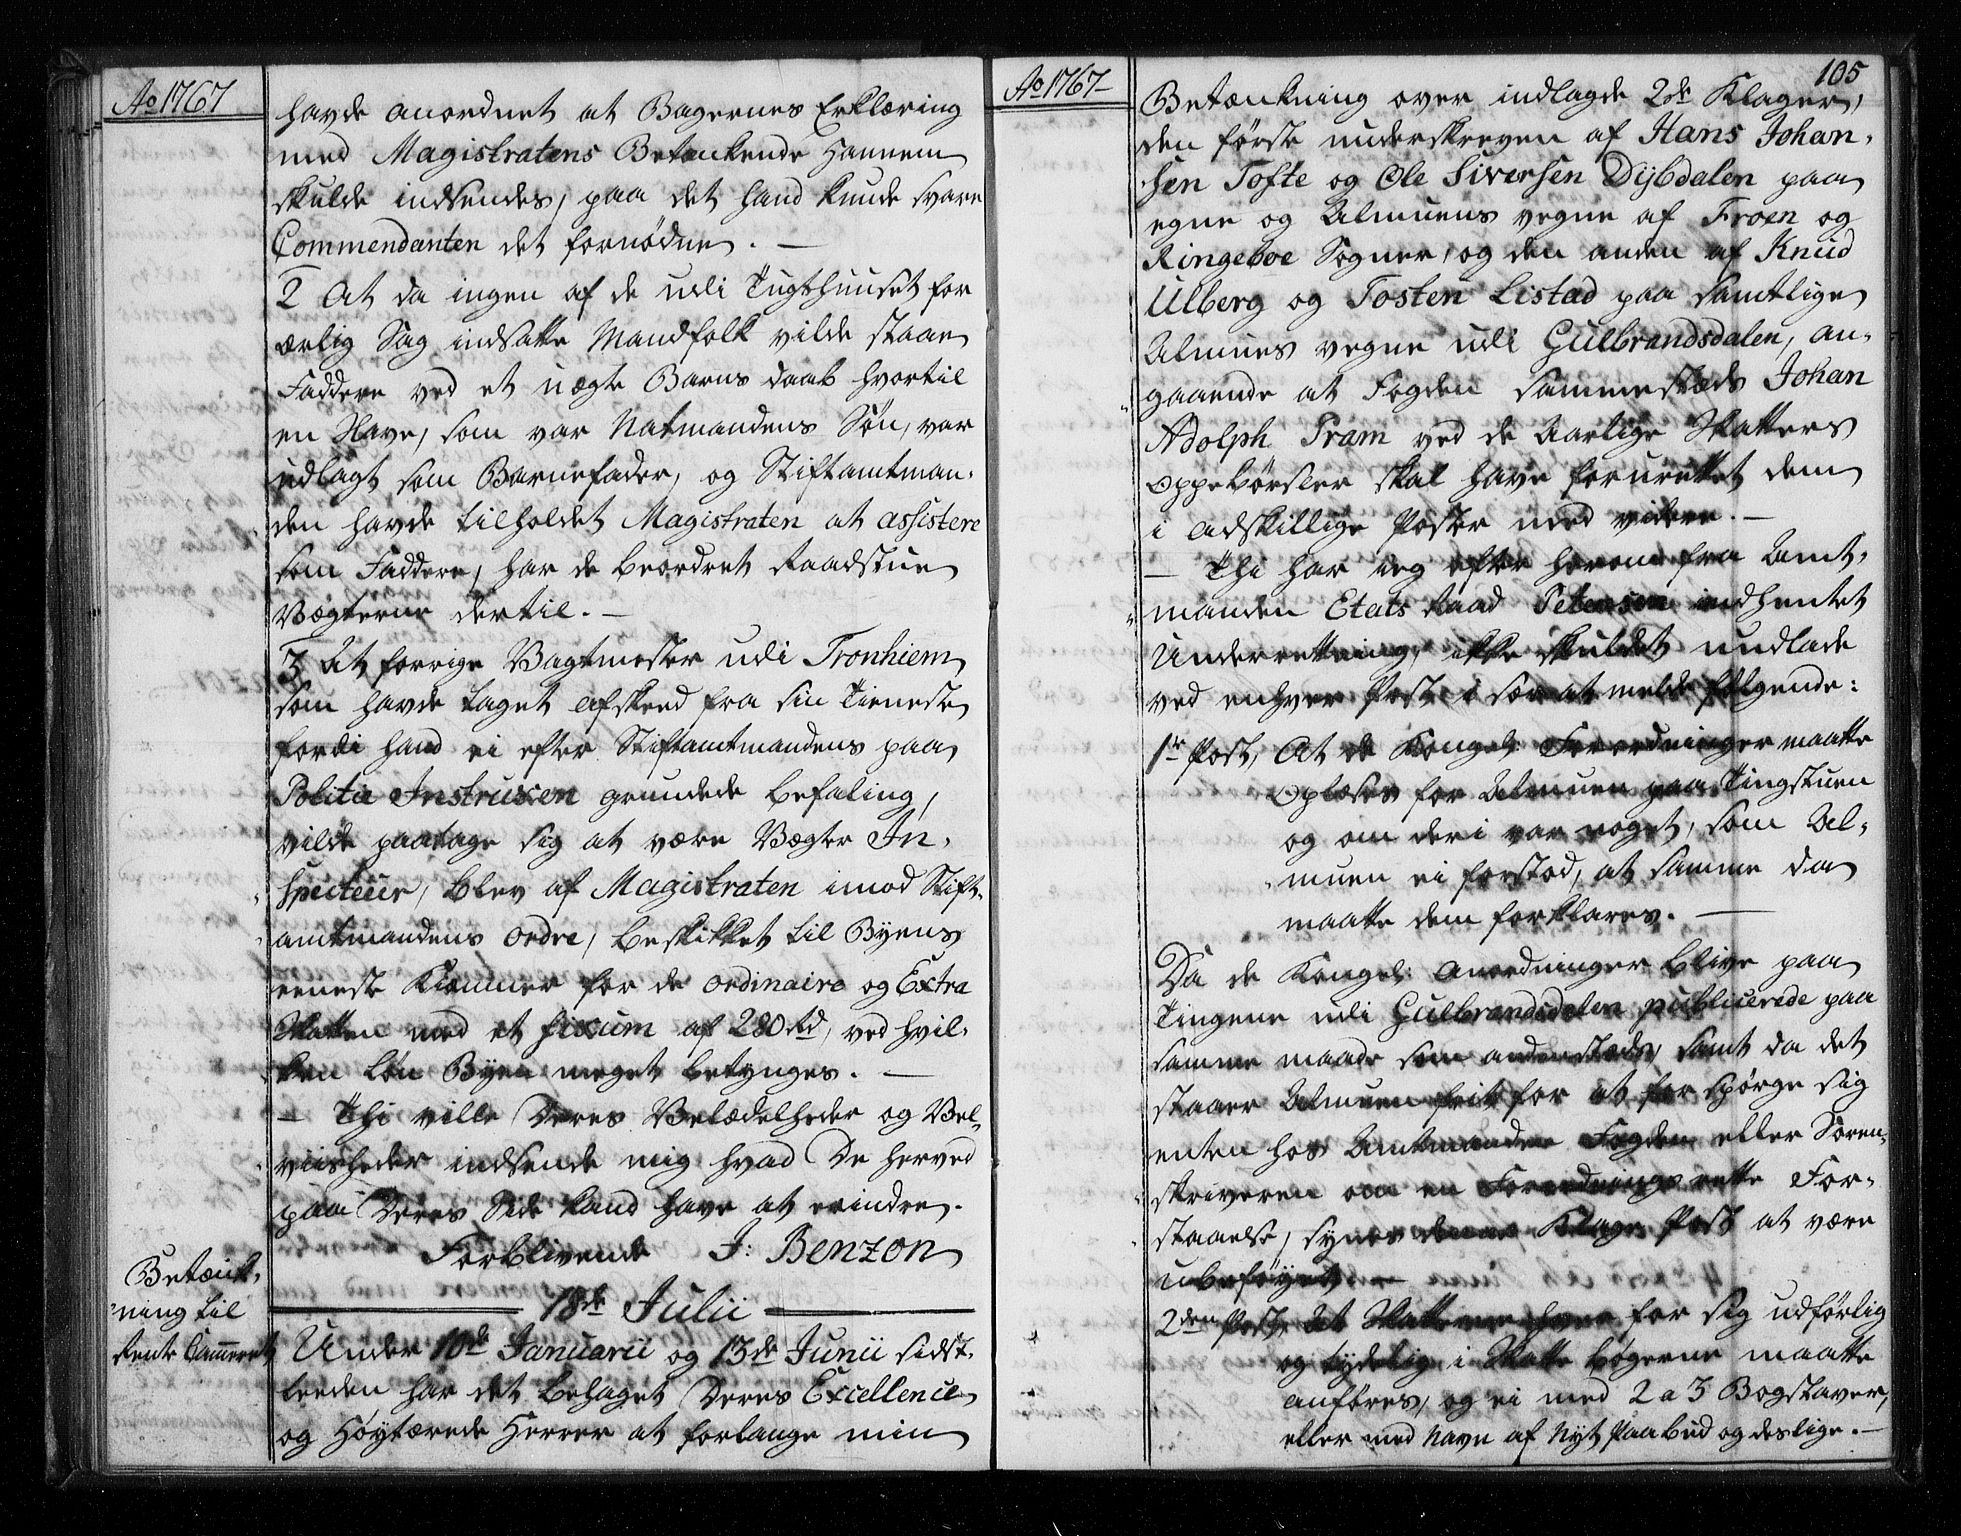 Ao 1767
havde anordnet at Bagernes Erklæring
med Magistratens Betænkende hannem
skulde indsendes, paa det hand kunde svare
Commendanten det fornødne. —
2 At da ingen af de udi Tugthuuset for
ærlig Sag indsatte Mandfolk vilde staae
Faddere ved et uægte Barns daab hvortil
en Slave, som var Natmandens Søn, var
udlagt som Barnefader, og Stiftamtman-
den havde tilholdet Magistraten at assistere
som Faddere, har de beordret Raadstue
Vægterne dertil. —
3 At forrige Vagtmester udi Tronhiem
som havde taget afskeed fra sin Tieneste
fordi hand ei efter Stiftamtmandens paa
Politie Instruxen grundede befaling,
vilde paatage sig at være Vægter In-
specteur, blev af Magistraten imod Stift-
amtmandens ordre, beskikket til Byens
eeneste Kiæmner for de ordinaire og Extra
Skatter med et fixum af 280 Rd, ved hvil-
ken løn Byen meget betynges. —
— Thi ville Deres Velædelheder og Vel-
viisheder indsende mig hvad De herved
paa Deres Side kand have at erindre.
Forblivende J: Benzon
18de Julii
Betænk-
ning til
Rente Cammeret
Under 10de Januarii og 13de Junii sidst-
leeden har det behaget Deres Excellence
og Høytærede Herrer at forlange min
Ao 1767
105
Betænkning over indlagde 2de Klager,
den første underskreven af Hans Johan-
sen Tofte og Ole Siversen Dijbdalen paa
egne og Almuens vegne af Froen og
Ringeboe Sogner, og den anden af Knud
Ulberg og Tosten Listad paa samtlige
Almues vegne udi Gulbrandsdalen, an-
gaaende at Fogden sammestæds Johan
Adolph Pram ved de Aarlige Skatters
oppebørsler skal have forurettet dem
i adskillige Poster med videre. —
— Thi har ieg efter herom fra Amt-
manden Etats Raad Petersen indhentet
Underretning, ikke skuldet undlade
ved enhver Post i sær at melde følgende:
1te Post, At de Kongel: Forordninger maatte
Oplæses for Almuen paa Tingstuen
og om deri var noget, som Al-
muen ei forstod, at samme da
maatte dem forklares. —
Da de Kongel: Anordninger blive paa
Tingene udi Gulbrandsdalen publicerede paa
samme maade som andenstæds, samt da det
staaer Almuen frit for at for spørge sig
enten hos Amtmanden Fogden eller Soren-
skriveren om en Forordnings rette For-
staaelse, synes denne Klage Post at være
ubeføyet. —
2den Post, At Skatterne hver for sig udførlig
og tydelig i Skatte bøgerne maatte
anføres, og ei med 2 a 3 Bogstaver,
eller med Navn af Nyt Paabud og deslige. —